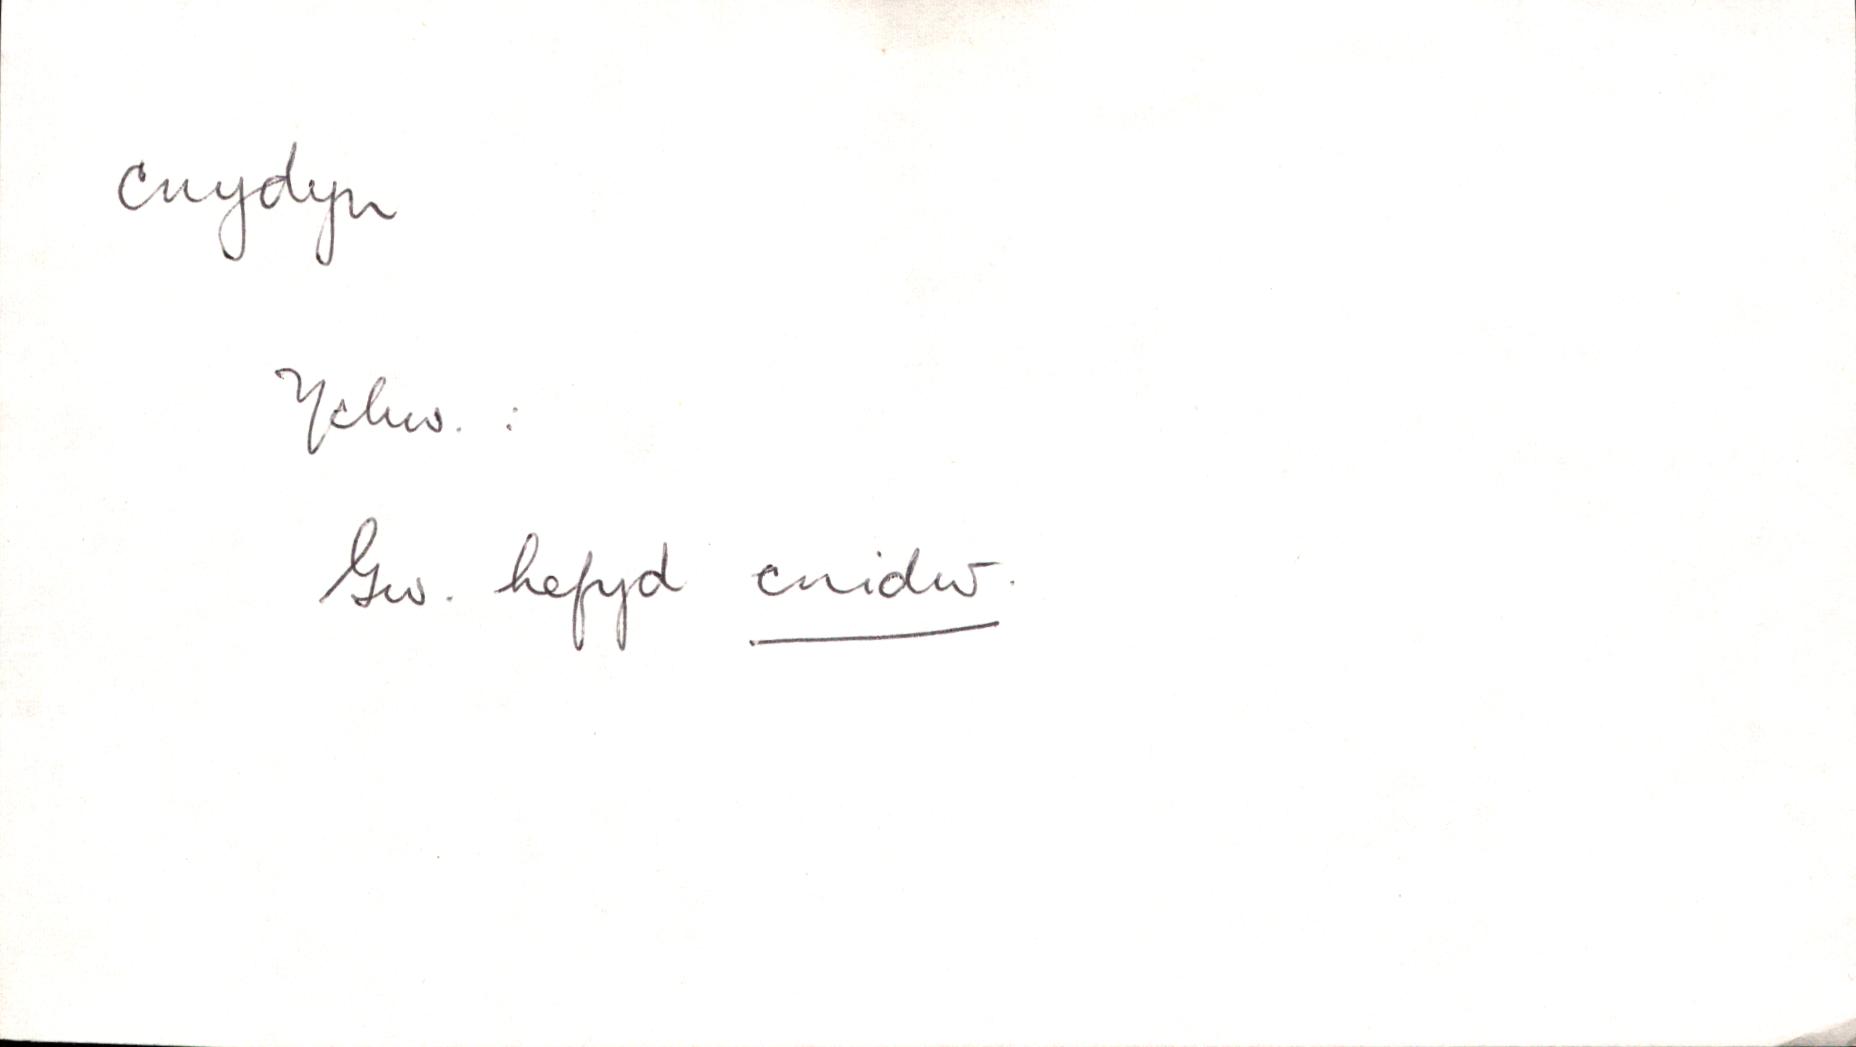 cnydyn
Ychw. :
Gw. hefyd cnidw.